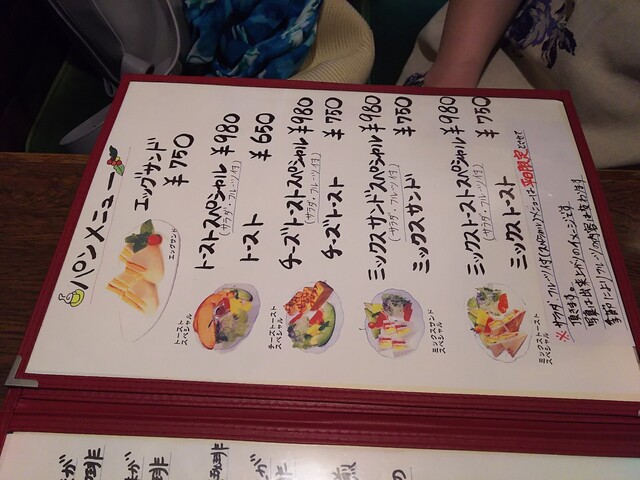 パンメニュー
エッグサンド
¥750
エッグサンド
トーストスペシャル ¥980
(サラダ・フルーツ付)
トースト ¥650
トースト
スペシャル
チーズトーストスペシャル ¥980
(サラダ・フルーツ付)
チーズトースト ¥750
チーズトースト
スペシャル
ミックスサンドスペシャル ¥980
(サラダ・フルーツ付)
ミックスサンド ¥750
ミックスサンド
スペシャル
ミックストーストスペシャル ¥980
(サラダ・フルーツ付)
ミックストースト ¥750
ミックストースト
スペシャル
※サラダ・フルーツ付(スペシャル)メニューは平日限定とさせて
頂きます。
写真は出来上がりのイメージです
季節によりフルーツの内容は変わります